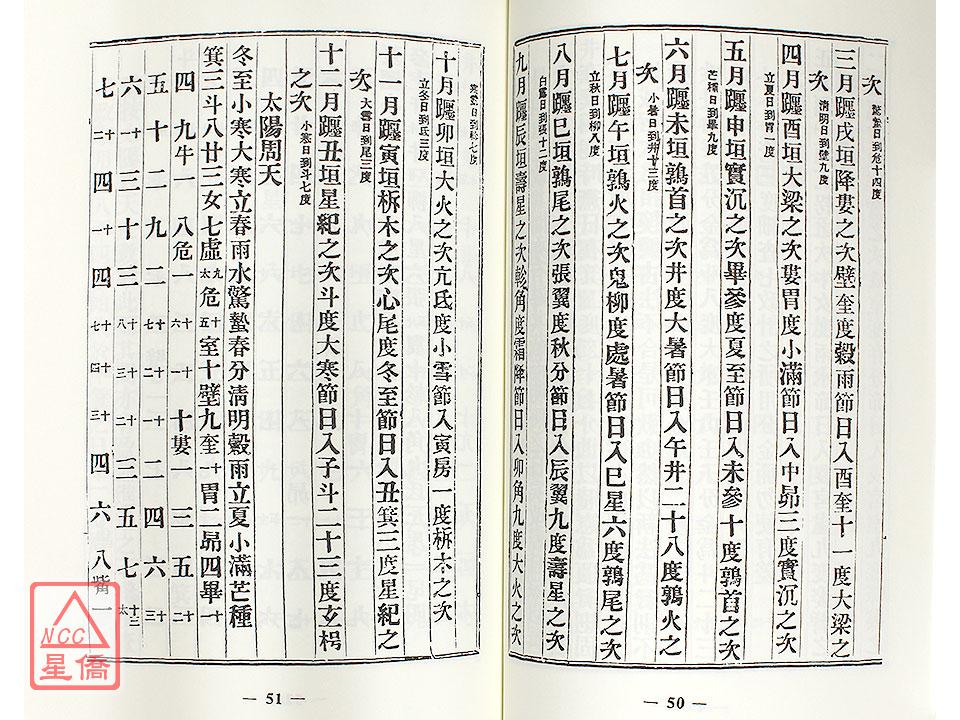 次 驚蟄日到危十四度
三月躔戌垣降婁之次壁奎度穀雨節日入酉奎十一度大梁之
次 清明日到壁九度
四月躔酉垣大梁之次婁胃度小滿節日入申昴三度實沉之次
立夏日到胃一度
五月躔申垣實沉之次畢參度夏至節日入未參十度鶉首之次
芒種日到畢九度
六月躔未垣鶉首之次井度大暑節日入午井二十八度鶉火之
次 小暑日到井廿三度
七月躔午垣鶉火之次鬼柳度處暑節日入巳星六度鶉尾之次
立秋日到柳八度
八月躔巳垣鶉尾之次張翼度秋分節日入辰翼九度壽星之次
白露日到張十二度
九月躔辰垣壽星之次軫角度霜降節日入卯角九度大火之次
寒露日到軫七度
十月躔卯垣大火之次亢氐度小雪節入寅房一度析木之次
立冬日到氐三度
十一月躔寅垣析木之次心尾度冬至節日入丑箕三度星紀之
次 大雪日到尾三度
十二月躔丑垣星紀之次斗度大寒節日入子斗二十三度玄枵
之次 小寒日到斗七度
太陽周天
冬至小寒大寒立春雨水驚蟄春分清明穀雨立夏小滿芒種
箕三斗八廿三女七虛九太危十五室十壁九奎十一胃二昴四畢十一
四九牛一八危一十六十一十婁一三五十二
五十二九二十七十二十一二四六十三
六十一三十三十八十三十二三五七十三太
七十二四十一四十七十四十三四六八觜一
— 50 —
— 51 —
NCC
星僑